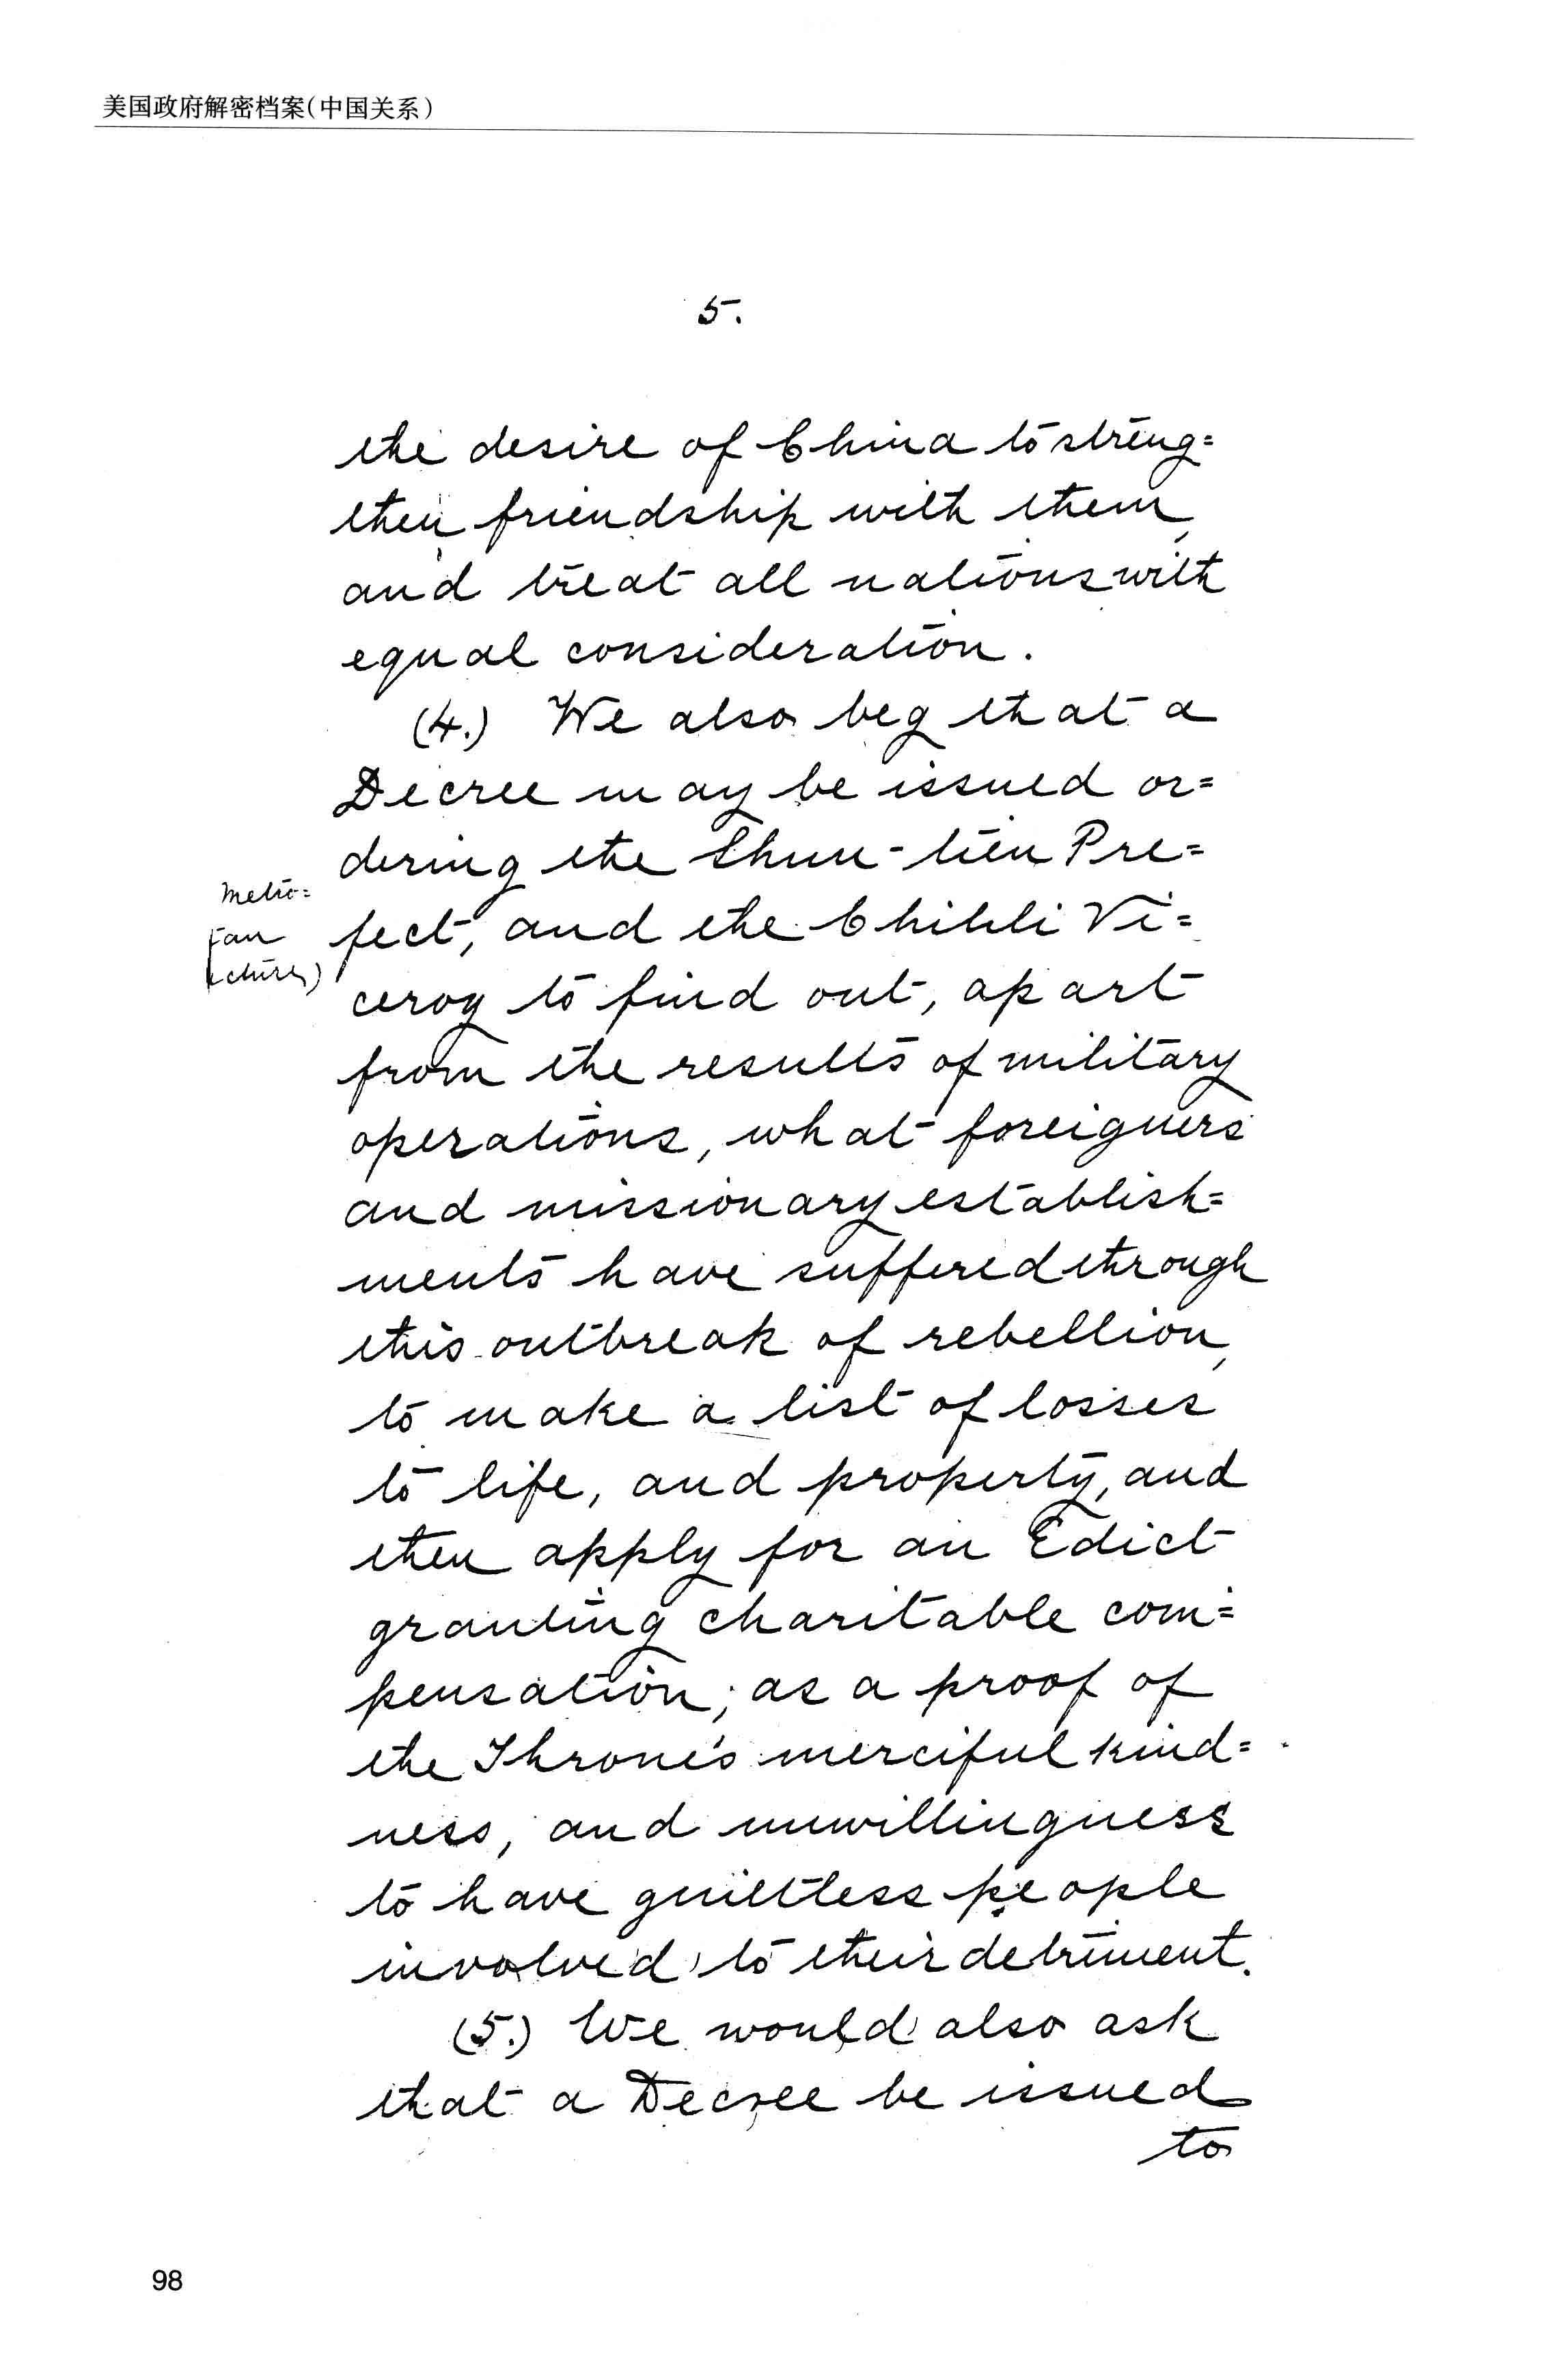 美国政府解密档案(中国关系)
5.
the desire of China to streng=
then friendship with them,
and treat all nations with
equal consideration.
(4.) We also beg that a
Decree may be issued or=
dering the Shun-tien Pre=
Metro=
fect, and the Chihli Vi=
ceroy to find out, apart
from the results of military
operations, what foreigners
and missionary establish=
ments have suffered through
this outbreak of rebellion,
to make a list of losses
to life, and property, and
then apply for an Edict
granting charitable com=
pensation; as a proof of
the Throne's merciful kind=
ness, and unwillingness
to have guiltless people
involved to their detriment.
(5.) We would also ask
that a Decree be issued
to
98